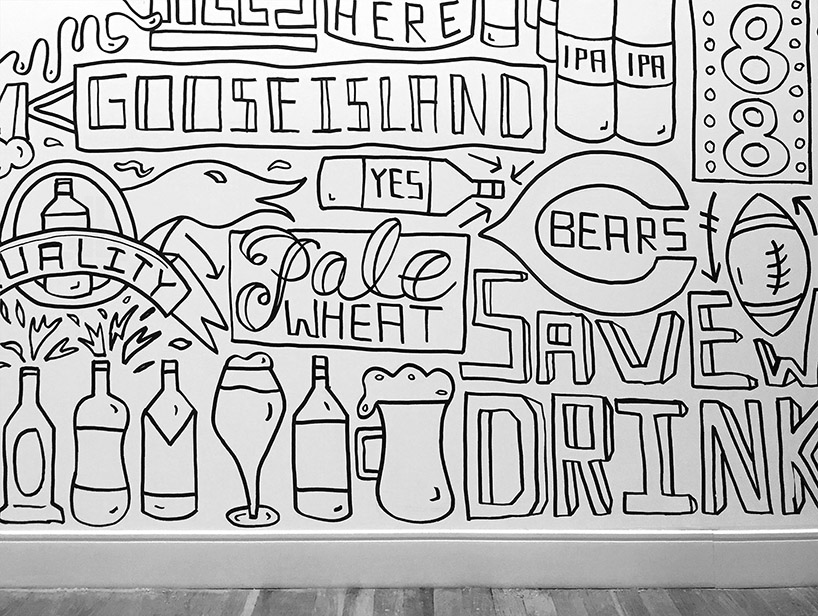 HERE
IPA IPA
88
GOOSE ISLAND
YES
BEARS
QUALITY
Pale
WHEAT
SAVE W
DRINK